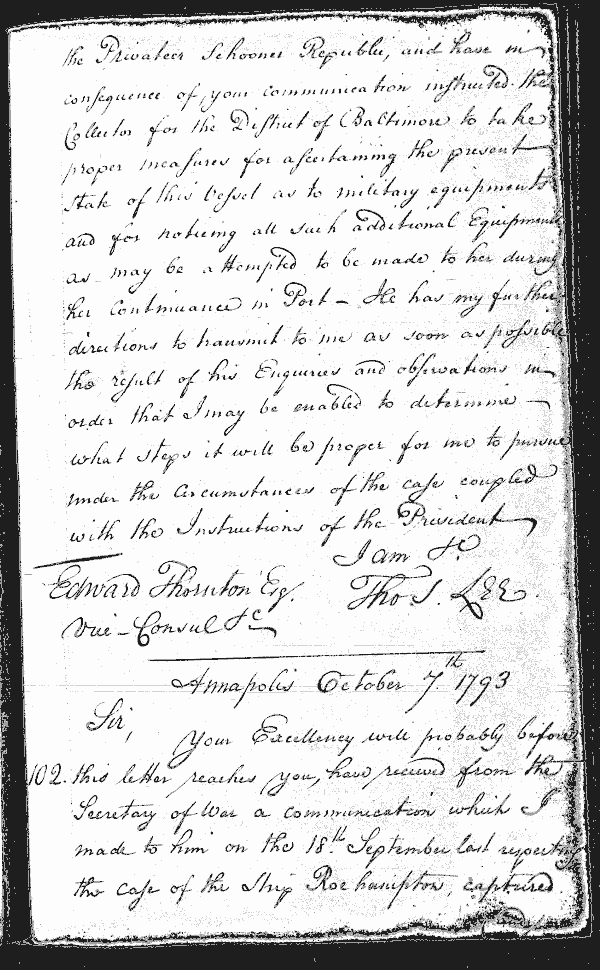 the Privateer Schooner Republic, and have in
consequence of your communication instructed the
Collector for the District of Baltimore to take
proper measures for ascertaining the present
state of this Vessel as to military equipments
and for noticing all such additional Equipments
as may be attempted to be made to her during
her continuance in Port – He has my further
directions to transmit to me as soon as possible
the result of his Enquiries and observations in
order that I may be enabled to determine –
what steps it will be proper for me to pursue
under the Circumstances of the case coupled
with the Instructions of the President
I am &c
Edward Thornton Esq. Tho. S. LEE.
Vice-Consul &c
Annapolis October 7.th 1793
Sir,
Your Excellency will probably before
102. this letter reaches you, have received from the
Secretary of War a communication which I
made to him on the 18.th September last respecting
the case of the Ship Roehampton, captured